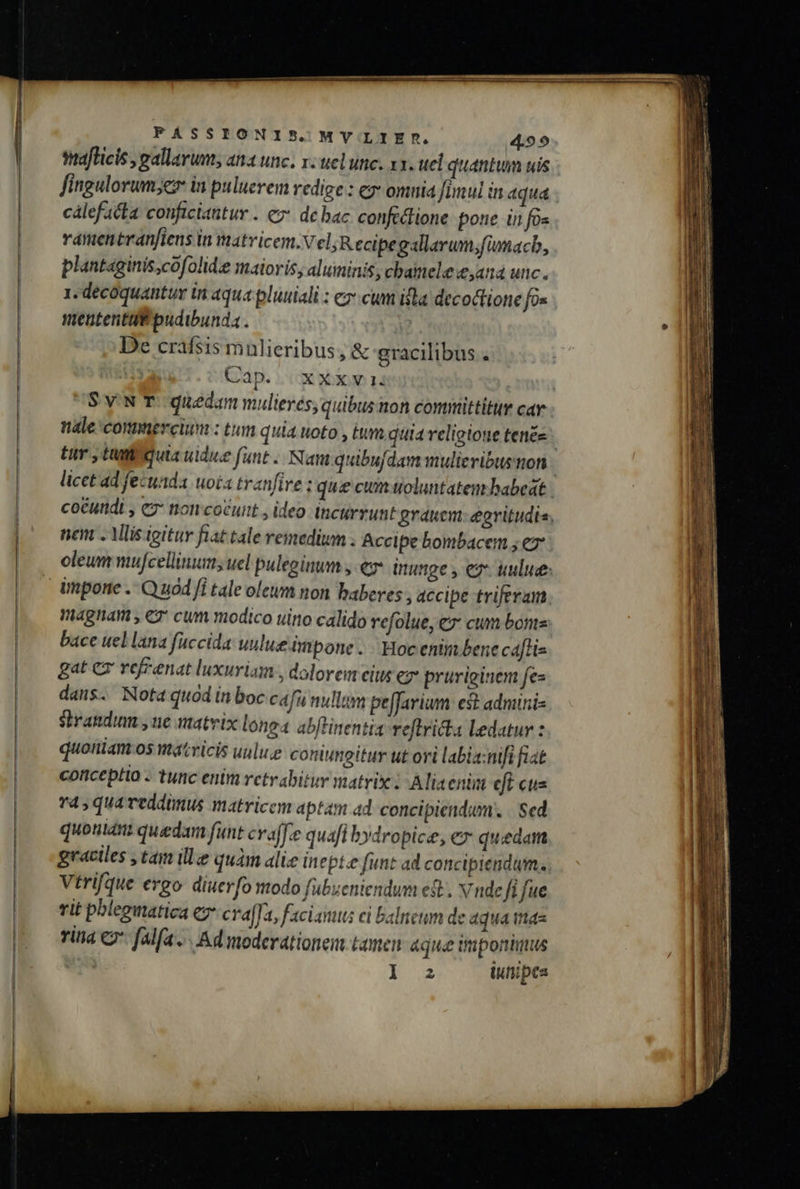 PASSIONIB. MVLIER. 499
maſticis, gallarum, ana unc. 1. uel unc. 11. uel quantum uis
ſingulorum, & in puluerem redige: & omnia ſimul in aqua
calefacta conficiantur. & de hac confectione pone in ſo=
ramentranſiens in matricem. Vel, Recipe gallarum, ſumach,
plantaginis, cõſolidæ maioris, aluminis, chamelææ, ana unc.
1. decoquantur in aqua pluuiali: & cum iſta decoctione fo=
mententur pudibunda.
De craſsis mulieribus, & gracilibus.
Cap. XXXVI.
SVNT quædam mulieres, quibus non committitur car
nale commercium: tum quia uoto, tum quia religione tenẽ=
tur, tum quia uiduæ ſunt. Nam quibuſdam mulieribus non
licet ad ſecunda uota tranſire: quæ cum uoluntatem habeãt
coëundi, & non coëunt, ideo incurrunt grauem ægritudi=
nem. Illis igitur fiat tale remedium. Accipe bombacem, &
oleum muſcellinum, uel puleginum, & inunge, & uuluæ
impone. Quòd ſi tale oleum non haberes, accipe triferam
magnam, & cum modico uino calido reſolue, & cum bom=
bace uel lana ſuccida uuluæ impone. Hoc enim bene caſti=
gat & refrænat luxuriam, dolorem eius & pruriginem ſe=
dans. Nota quòd in hoc caſu nullum peſſarium eſt admini=
ſtrandum, ne matrix longa abſtinentia reſtricta lædatur:
quoniam os matricis uuluæ coniungitur ut ori labia: niſi fiat
conceptio. tunc enim retrahitur matrix. Alia enim eſt cu=
ra, qua reddimus matricem aptam ad concipiendum. Sed
quoniam quædam ſunt craſſæ quaſi hydropicæ, & quædam
graciles, tam illæ quàm aliæ ineptæ ſunt ad concipiendum.
Vtriſque ergo diuerſo modo ſubueniendum eſt. Vnde ſi fue
rit phlegmatica & craſſa, faciamus ei balneum de aqua ma=
rina & ſalſa. Ad moderationem tamen aquæ imponimus
I 2 iunipe=